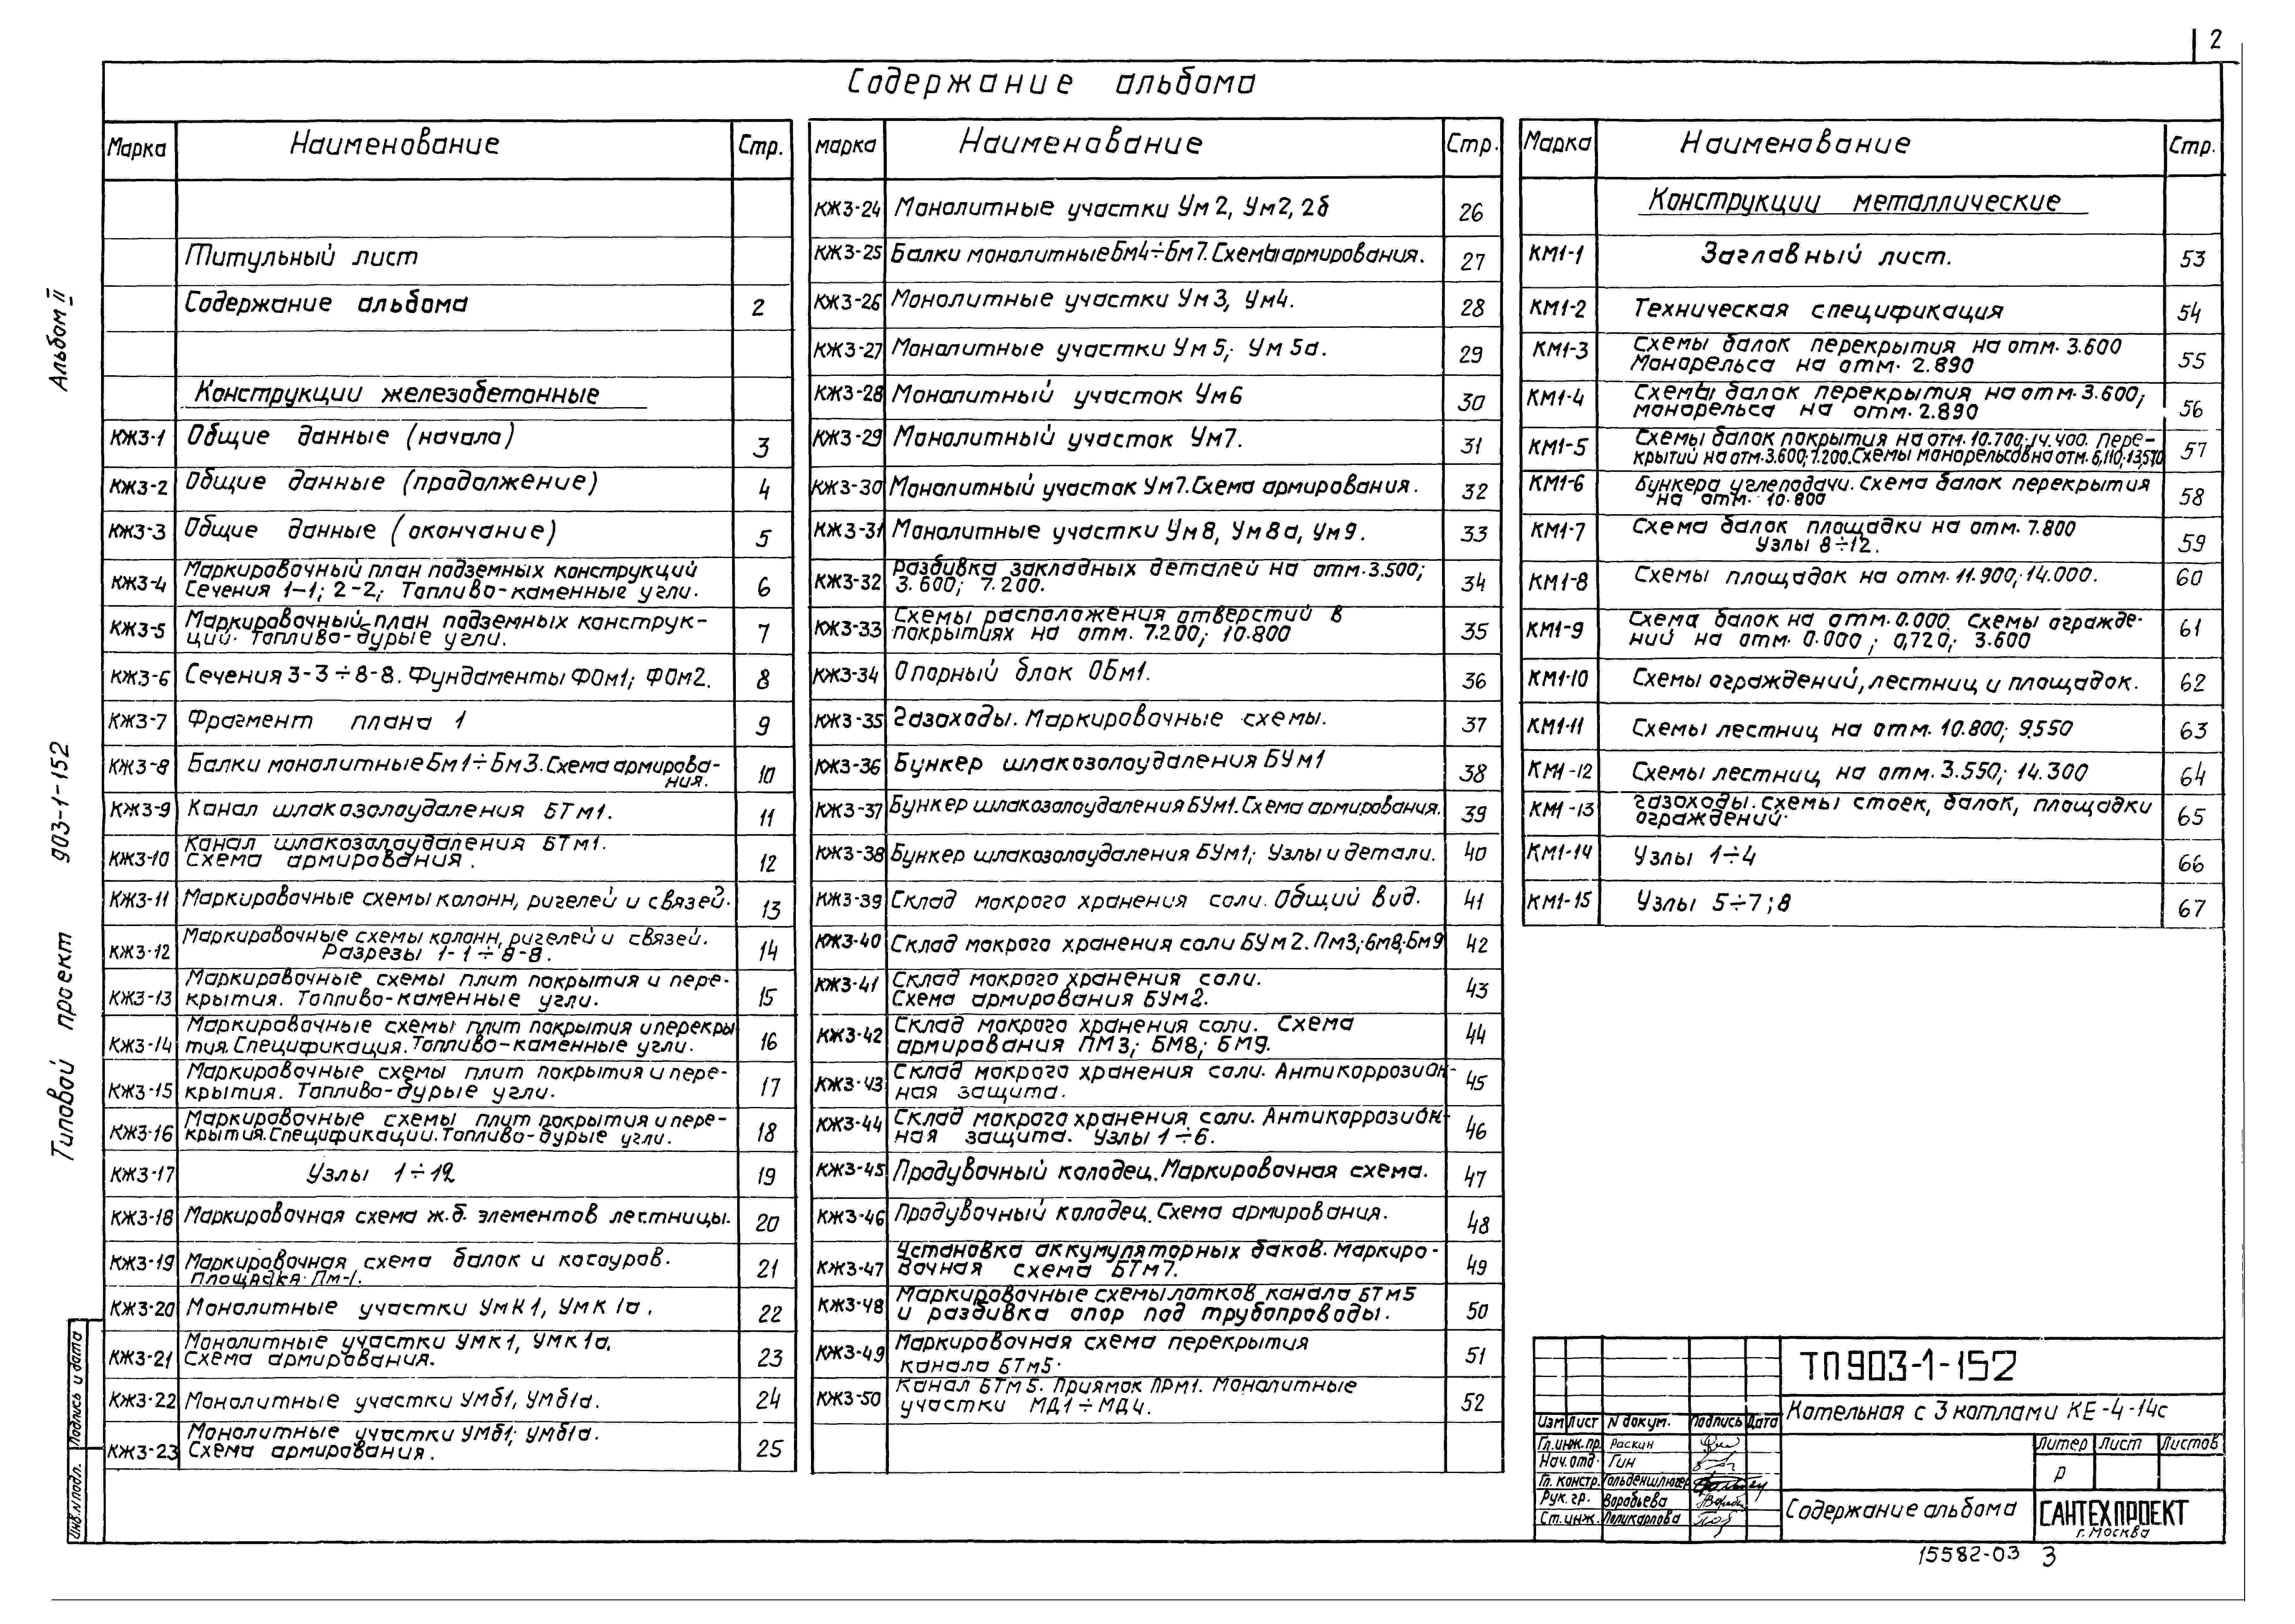 2
Содержание альбома
Альбом II
Типовой проект 903-1-152
Марка Наименование Стр.
Титульный лист
Содержание альбома 2
Конструкции железобетонные
КЖ3-1 Общие данные (начало) 3
КЖ3-2 Общие данные (продолжение) 4
КЖ3-3 Общие данные (окончание) 5
КЖ3-4 Маркировочный план подземных конструкций 6
Сечения 1-1; 2-2; Топливо-каменные угли.
КЖ3-5 Маркировочный план подземных конструк- 7
ций. Топливо-бурые угли.
КЖ3-6 Сечения 3-3÷8-8. Фундаменты ФОм1; ФОм2. 8
КЖ3-7 Фрагмент плана 1 9
КЖ3-8 Балки монолитные Бм1÷Бм3. Схема армирова- 10
ния.
КЖ3-9 Канал шлакозолоудаления БТм1. 11
КЖ3-10 Канал шлакозолоудаления БТм1. 12
Схема армирования.
КЖ3-11 Маркировочные схемы колонн, ригелей и связей. 13
КЖ3-12 Маркировочные схемы колонн, ригелей и связей. 14
Разрезы 1-1÷8-8.
КЖ3-13 Маркировочные схемы плит покрытия и пере- 15
крытия. Топливо-каменные угли.
КЖ3-14 Маркировочные схемы плит покрытия и перекры 16
тия. Спецификация. Топливо-каменные угли.
КЖ3-15 Маркировочные схемы плит покрытия и пере- 17
крытия. Топливо-бурые угли.
КЖ3-16 Маркировочные схемы плит покрытия и пере- 18
крытия. Спецификации. Топливо-бурые угли.
КЖ3-17 Узлы 1÷12 19
КЖ3-18 Маркировочная схема ж.б. элементов лестницы. 20
КЖ3-19 Маркировочная схема балок и косоуров. 21
Площадка Пм-1.
КЖ3-20 Монолитные участки УмК1, УмК1а. 22
КЖ3-21 Монолитные участки УмК1, УмК1а. 23
Схема армирования.
КЖ3-22 Монолитные участки Умб1, Умб1а. 24
КЖ3-23 Монолитные участки Умб1; Умб1а. 25
Схема армирования.
марка Наименование Стр.
КЖ3-24 Монолитные участки Ум2, Ум2, 2б 26
КЖ3-25 Балки монолитные Бм4÷Бм7. Схемы армирования. 27
КЖ3-26 Монолитные участки Ум3, Ум4. 28
КЖ3-27 Монолитные участки Ум5; Ум5а. 29
КЖ3-28 Монолитный участок Ум6 30
КЖ3-29 Монолитный участок Ум7. 31
КЖ3-30 Монолитный участок Ум7. Схема армирования. 32
КЖ3-31 Монолитные участки Ум8, Ум8а, Ум9. 33
КЖ3-32 Разбивка закладных деталей на отм. 3.500; 34
3.600; 7.200.
КЖ3-33 Схемы расположения отверстий в 35
покрытиях на отм. 7.200; 10.800
КЖ3-34 Опорный блок ОБм1. 36
КЖ3-35 Газоходы. Маркировочные схемы. 37
КЖ3-36 Бункер шлакозолоудаления БУм1 38
КЖ3-37 Бункер шлакозолоудаления БУм1. Схема армирования. 39
КЖ3-38 Бункер шлакозолоудаления БУм1; Узлы и детали. 40
КЖ3-39 Склад мокрого хранения соли. Общий вид. 41
КЖ3-40 Склад мокрого хранения соли БУм2. Пм3; Бм8; Бм9 42
КЖ3-41 Склад мокрого хранения соли. 43
Схема армирования БУм2.
КЖ3-42 Склад мокрого хранения соли. Схема 44
армирования ПМ3; БМ8; БМ9.
КЖ3-43 Склад мокрого хранения соли. Антикоррозион- 45
ная защита.
КЖ3-44 Склад мокрого хранения соли. Антикоррозион- 46
ная защита. Узлы 1÷6.
КЖ3-45 Продувочный колодец. Маркировочная схема. 47
КЖ3-46 Продувочный колодец. Схема армирования. 48
КЖ3-47 Установка аккумуляторных баков. Маркиро- 49
вочная схема БТм7.
КЖ3-48 Маркировочные схемы лотков канала БТм5 50
и разбивка опор под трубопроводы.
КЖ3-49 Маркировочная схема перекрытия 51
канала БТм5.
КЖ3-50 Канал БТм5. Приямок ПРм1. Монолитные 52
участки МД1÷МД4.
Марка Наименование Стр.
Конструкции металлические
КМ1-1 Заглавный лист. 53
КМ1-2 Техническая спецификация 54
КМ1-3 Схемы балок перекрытия на отм. 3.600 55
Монорельса на отм. 2.890
КМ1-4 Схемы балок перекрытия на отм. 3.600; 56
монорельса на отм. 2.890
КМ1-5 Схемы балок покрытия на отм. 10.700; 14.400. Пере- 57
крытий на отм. 3.600; 7.200. Схемы монорельсов на отм. 6,110; 13,570
КМ1-6 Бункера углеподачи. Схема балок перекрытия 58
на отм. 10.800
КМ1-7 Схема балок площадки на отм. 7.800 59
Узлы 8÷12.
КМ1-8 Схемы площадок на отм. 11.900; 14.000. 60
КМ1-9 Схема балок на отм. 0.000 Схемы огражде- 61
ний на отм. 0.000; 0,720; 3.600
КМ1-10 Схемы ограждений, лестниц и площадок. 62
КМ1-11 Схемы лестниц на отм. 10.800; 9.550 63
КМ1-12 Схемы лестниц на отм. 3.550; 14.300 64
КМ1-13 Газоходы. схемы стоек, балок, площадки 65
ограждений.
КМ1-14 Узлы 1÷4 66
КМ1-15 Узлы 5÷7; 8 67
Подпись и дата
Инв. N подл.
ТП 903-1-152
Котельная с 3 котлами КЕ-4-14с
Изм Лист N докум. Подпись Дата
Гл. инж. пр. Раскин
Нач. отд. Гин
Гл. констр. Гольденшлюгер
Рук. гр. Воробьева
Ст. инж. Поликарпова
Литер Лист Листов
Р
Содержание альбома
САНТЕХПРОЕКТ
г. Москва
15582-03 3